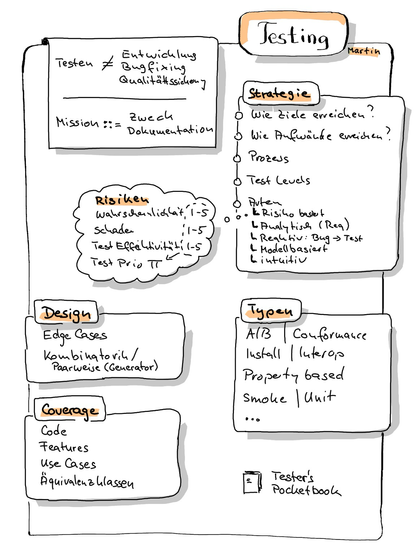 Testing
Martin
Testen ≠ Entwicklung
Bugfixing
Qualitätssicherung
Mission ::= Zweck
Dokumentation
Strategie
Wie Ziele erreichen?
Wie Aufwände erreichen?
Prozess
Test Levels
Arten
Risiko basiert
Analytisch (Req)
Reaktiv: Bug → Test
Modellbasiert
intuitiv
Risiken
Wahrscheinlichkeit 1-5
Schaden 1-5
Test Effektivität 1-5
Test Prio π
Design
Edge Cases
Kombinatorik/
Paarweise (Generator)
Typen
A/B | Conformance
Install | Interop
Property based
Smoke | Unit
...
Coverage
Code
Features
Use Cases
Äquivalenzklassen
Tester's
Pocketbook